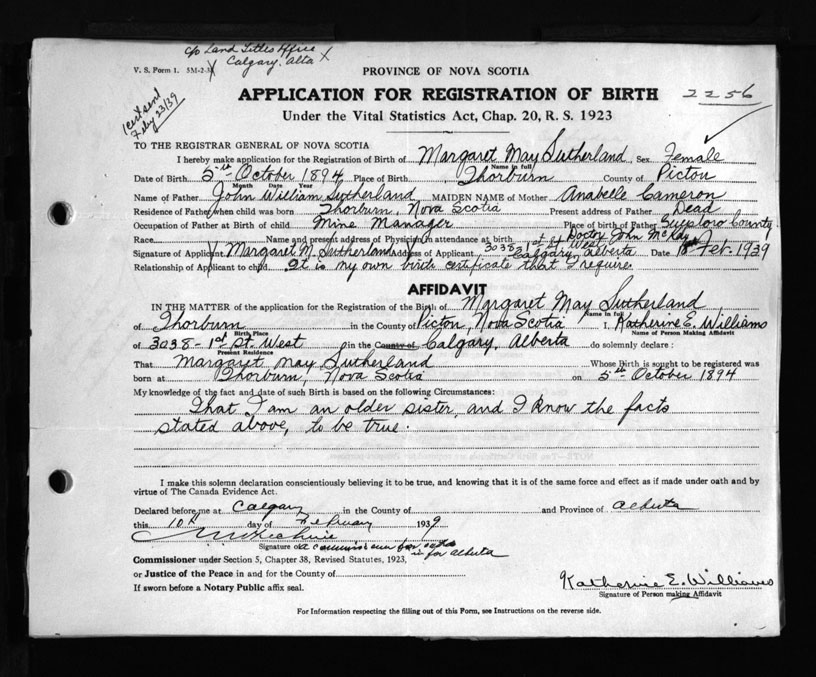 c/o Land Titles Office
Calgary, Alta
V. S. Form 1. 5M-2-3
PROVINCE OF NOVA SCOTIA
(cert sent
Feby 23/39
APPLICATION FOR REGISTRATION OF BIRTH
2256
Under the Vital Statistics Act, Chap. 20, R. S. 1923
TO THE REGISTRAR GENERAL OF NOVA SCOTIA
I hereby make application for the Registration of Birth of Margaret May Sutherland, Sex Female
Name in full
Date of Birth 5th October 1894 Place of Birth Thorburn County of Pictou
Month Date Year
Name of Father John William Sutherland MAIDEN NAME of Mother Anabelle Cameron
Residence of Father when child was born Thorburn, Nova Scotia Present address of Father Dead
Occupation of Father at Birth of child Mine Manager Place of birth of Father Guysboro County
Race Name and present address of Physician in attendance at birth Doctor John McKay
3038 1st St West
Signature of Applicant Margaret M. Sutherland Address of Applicant Calgary, Alberta Date Feb. 1939
Relationship of Applicant to child It is my own birth certificate that I require.
AFFIDAVIT
IN THE MATTER of the application for the Registration of the Birth of Margaret May Sutherland
Name in full
of Thorburn in the County of Pictou, Nova Scotia I, Katherine E. Williams
Birth Place Name of Person Making Affidavit
of 3038-1st St. West in the County of Calgary, Alberta do solemnly declare :
Present Residence
That Margaret May Sutherland Whose Birth is sought to be registered was
born at Thorburn, Nova Scotia on 5th October 1894
My knowledge of the fact and date of such Birth is based on the following Circumstances:
That I am an older sister, and I know the facts
stated above, to be true.
I make this solemn declaration conscientiously believing it to be true, and knowing that it is of the same force and effect as if made under oath and by
virtue of The Canada Evidence Act.
Declared before me at Calgary in the County of and Province of Alberta
this 10th day of February 1939
Signature of a Commissioner for oaths
in & for Alberta
Commissioner under Section 5, Chapter 38, Revised Statutes, 1923,
or Justice of the Peace in and for the County of
If sworn before a Notary Public affix seal.
Katherine E. Williams
Signature of Person making Affidavit
For Information respecting the filling out of this Form, see Instructions on the reverse side.